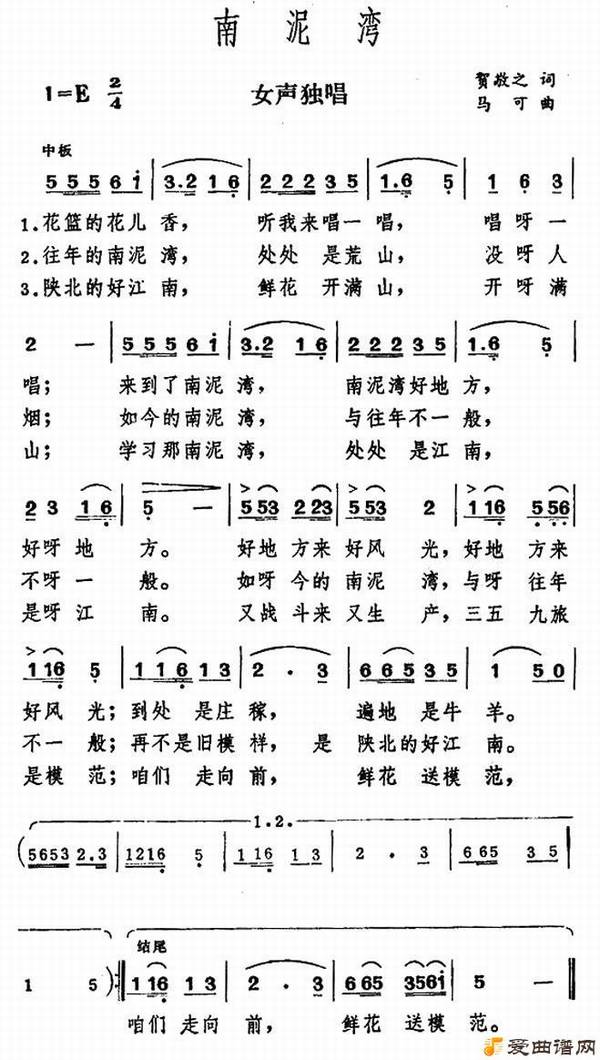 南泥湾
1=E 2/4
女声独唱
贺敬之 词
马可 曲
中板
5 5 5 6 i | 3.2 1 6 | 2 2 2 3 5 | 1.6 5 | 1 6 3
1.花篮的花儿 香， 听我来唱一 唱， 唱 呀 一
2.往年的南泥 湾， 处处 是荒 山， 没 呀 人
3.陕北的好江 南， 鲜花 开满 山， 开 呀 满
2 — | 5 5 5 5 6 i | 3.2 1 6 | 2 2 2 3 5 | 1.6 5
唱； 来到了南泥 湾， 南泥湾好地 方，
烟； 如今的南泥 湾， 与往年不一 般，
山； 学习那南泥 湾， 处处 是江 南，
2 3 1 6 | 5 — | 5 53 2 23 | 5 53 2 | 1 16 5 56
好呀 地 方。 好地 方来 好风 光，好地 方来
不呀 一 般。 如呀 今的 南泥 湾，与呀 往年
是呀 江 南。 又战 斗来 又生 产，三五 九旅
1 16 5 | 1 1 6 1 3 | 2 . 3 | 6 6 5 3 5 | 1 5 0
好风 光；到处 是庄 稼， 遍地 是牛 羊。
不一 般；再不 是旧模 样， 是 陕北的好江 南。
是模 范；咱们 走向 前， 鲜花 送模 范，
1.2.
(5653 2.3 | 1216 5 | 1 16 1 3 | 2 . 3 | 6 65 3 5 |
结尾
1 5 ) :‖ 1 16 1 3 | 2 . 3 | 6 65 356i | 5 — ‖
咱们 走向 前， 鲜花 送模 范。
爱曲谱网